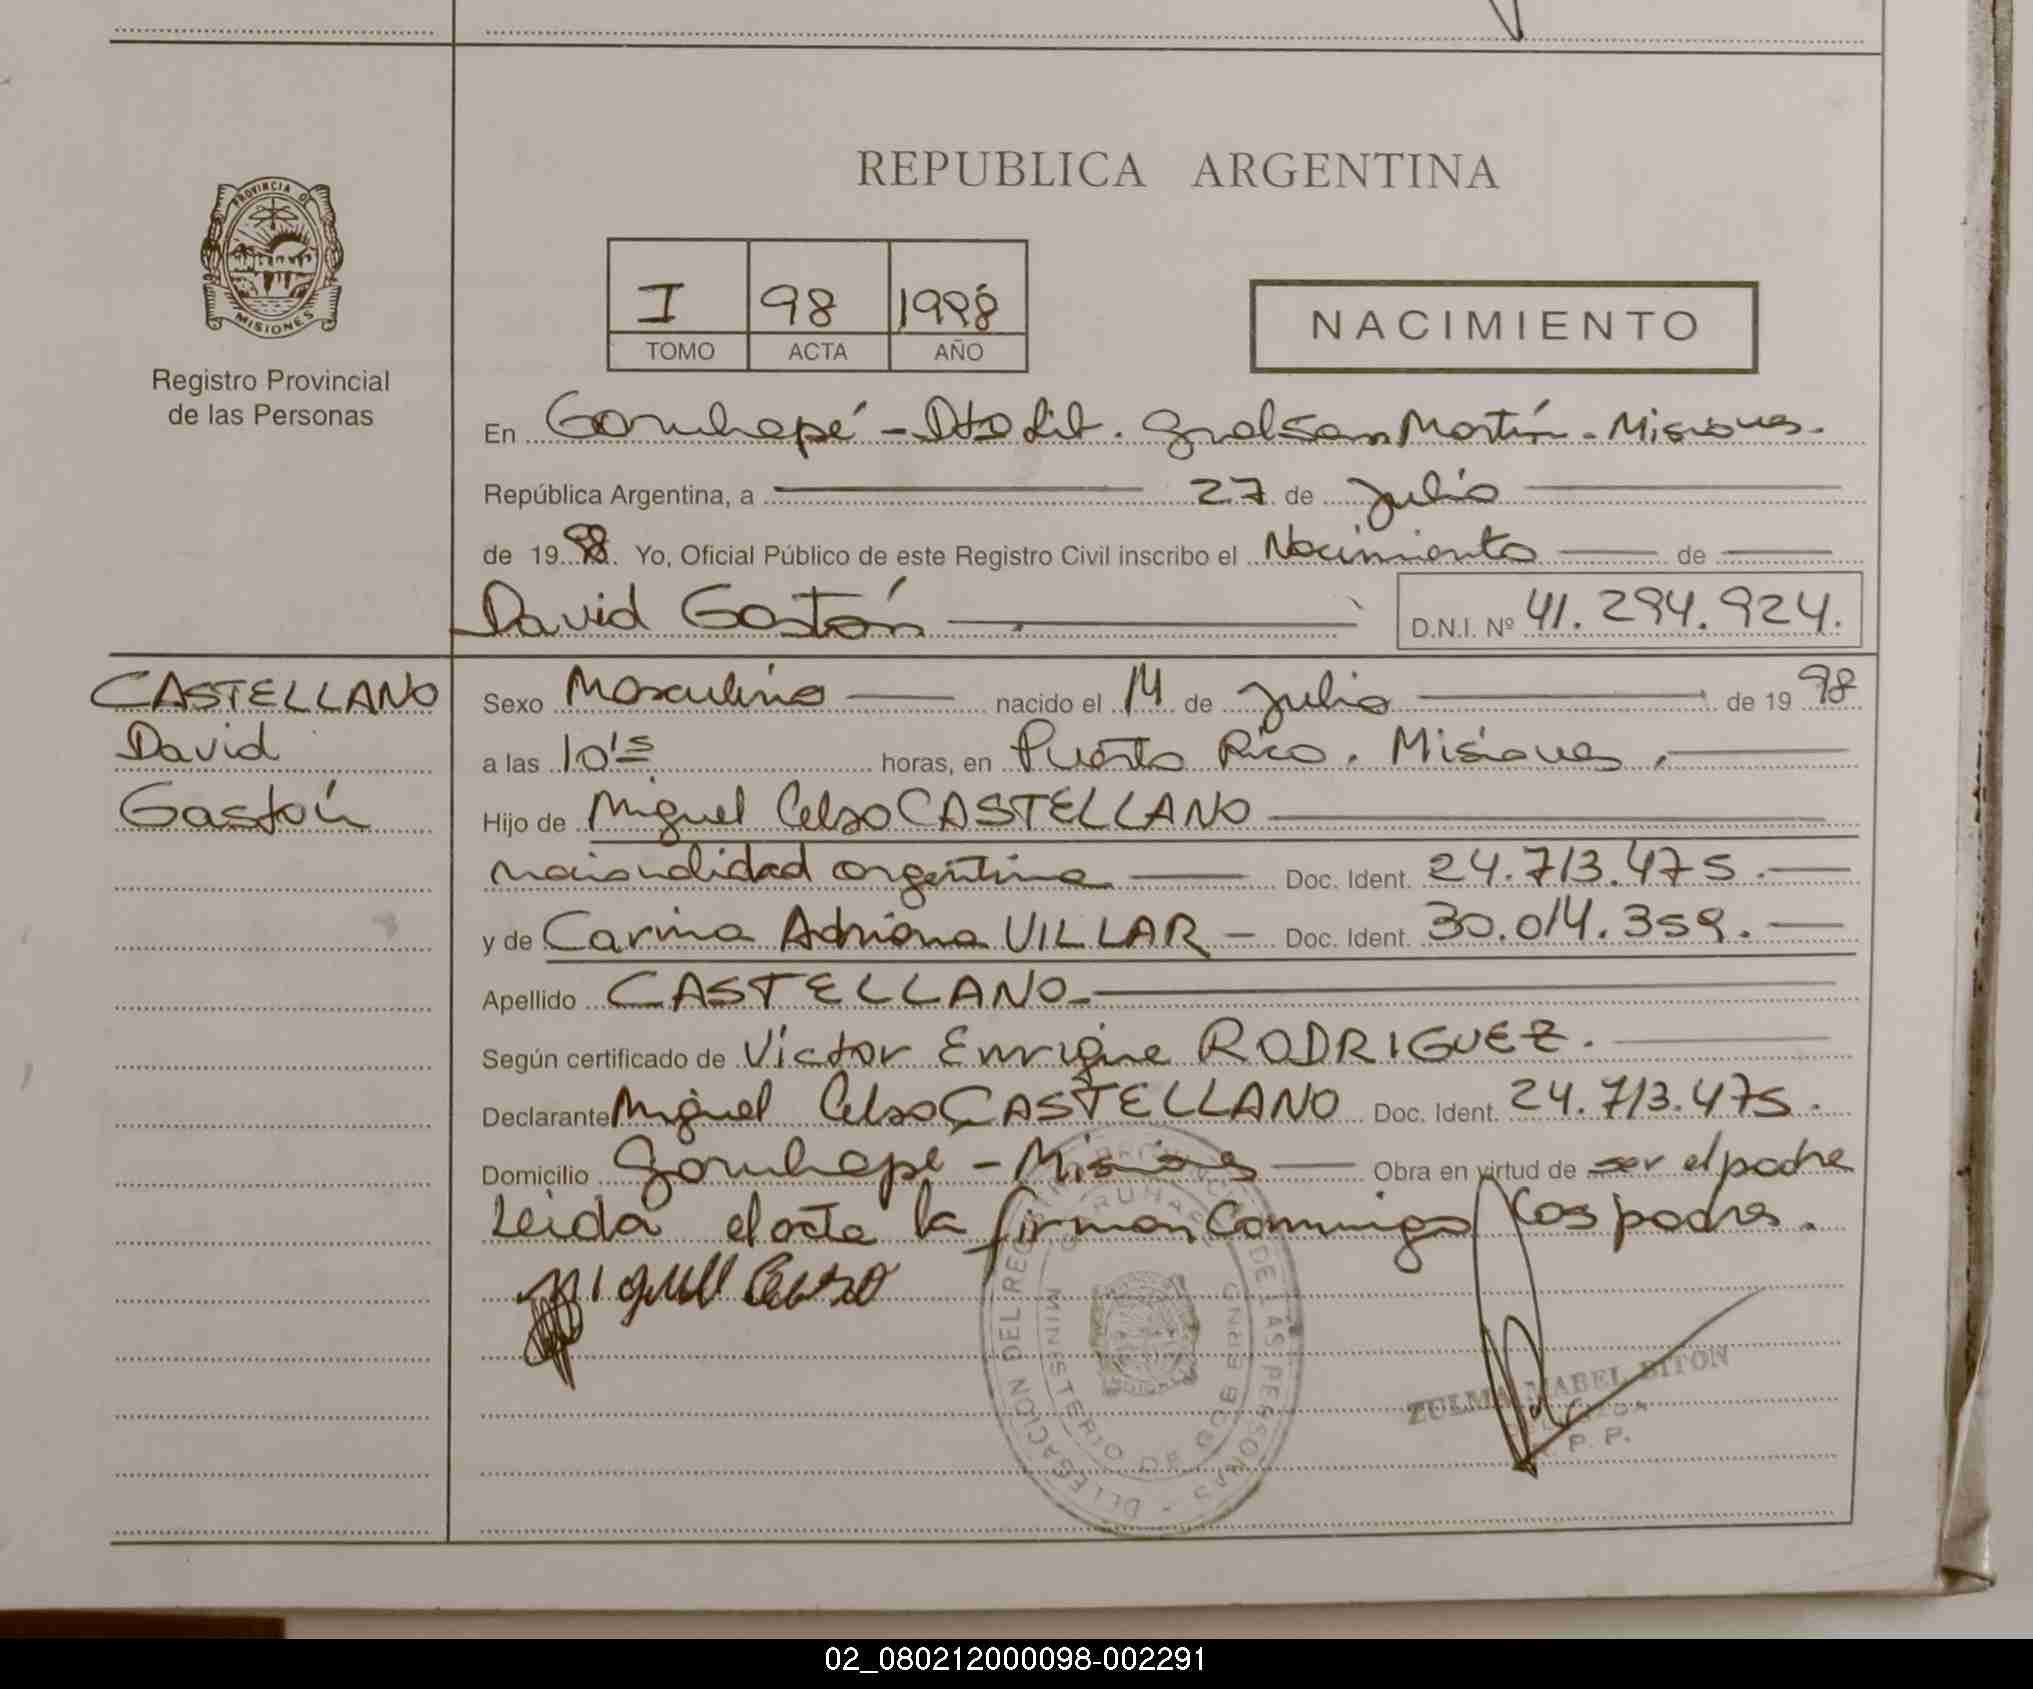 REPUBLICA ARGENTINA
PROVINCIA DE
MISIONES
Registro Provincial
de las Personas
I 98 1998
TOMO ACTA AÑO
NACIMIENTO
En Garuhapé - Dto Lib. Gral San Martín - Misiones.
República Argentina, a 27 de Julio
de 1998. Yo, Oficial Público de este Registro Civil inscribo el Nacimiento de
David Gastón
D.N.I. Nº 41.294.924.
CASTELLANO
David
Gastón
Sexo Masculino nacido el 14 de Julio de 1998
a las 10's horas, en Puerto Rico. Misiones.
Hijo de Miguel Celso CASTELLANO
nacionalidad argentina Doc. Ident. 24.713.475.
y de Carina Adriana VILLAR - Doc. Ident. 30.014.359.
Apellido CASTELLANO
Según certificado de Victor Enrique RODRIGUEZ.
Declarante Miguel Celso CASTELLANO Doc. Ident. 24.713.475.
Domicilio Garuhapé - Misiones Obra en virtud de ser el padre
Leida el acta la firman Conmigo los padres.
Miguel Celso
DELEGACION DEL REGISTRO PROVINCIAL DE LAS PERSONAS
GARUHAPE
MINISTERIO DE GOBIERNO
ZULMA MABEL BITON
02_080212000098-002291